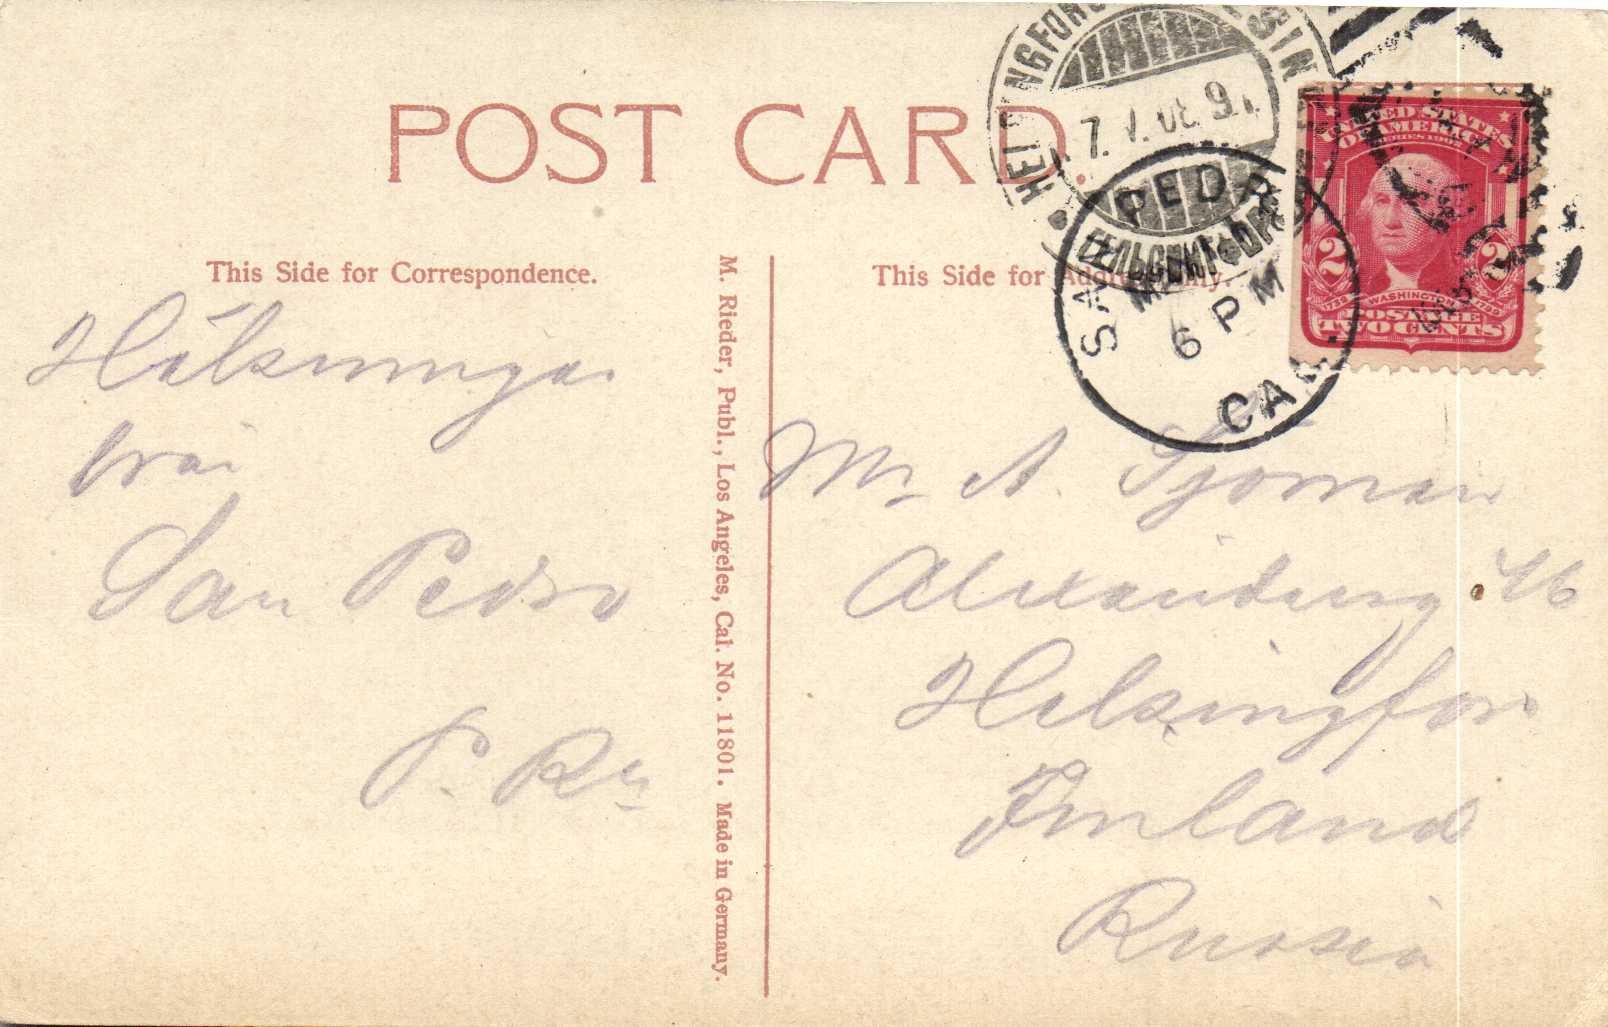 POST CARD.
This Side for Correspondence.
Hälsningar
från
San Pedro
M. Rieder, Publ., Los Angeles, Cal. No. 11801. Made in Germany.
This Side for Address Only.
HELSINGFORS
7. V. 08. 9
ГЕЛЬСИНГФОРСЪ
SAN PEDRO
6 PM
CAL.
UNITED STATES
OF AMERICA
SERIES 1902
2 2
1732 WASHINGTON 1799
POSTAGE
TWO CENTS
Mr A. Sjöman
Helsingfors
Finland
Russia